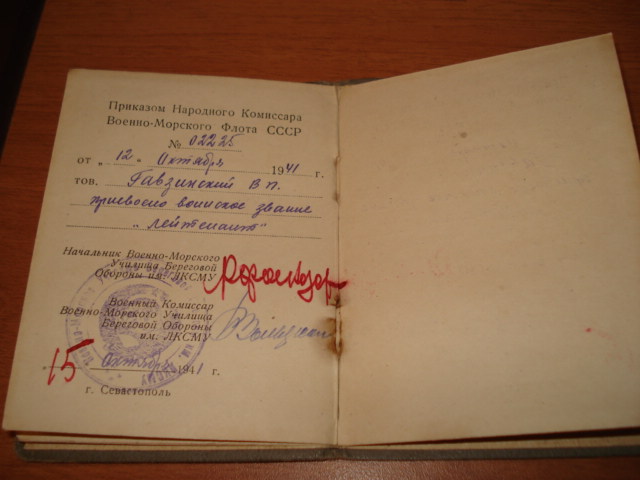 Приказом Народного Комиссара
Военно-Морского Флота СССР
№ 02225
от „ 12 „ Октября 1941 г.
тов. Гавзинский В П.
присвоено воинское звание
„ лейтенант"
Начальник Военно-Морского
Училища Береговой
Обороны им. ЛКСМУ
Военный Комиссар
Военно-Морского Училища
Береговой Обороны
им. ЛКСМУ
15 Октября 1941 г.
г. Севастополь